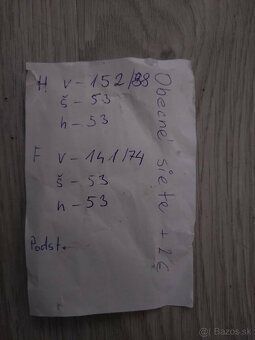 H v-152/88
š-53
h-53
F v-141/74
š-53
h-53
Podst.
Obecné siete +
Bazos.sk